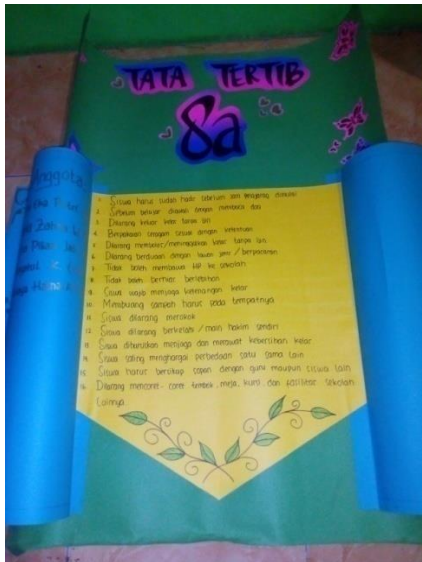 TATA TERTIB
8a
Anggota
1. Siswa harus sudah hadir sebelum bel dimulai
2. Sebelum belajar diawali dengan membaca doa
3. Dilarang keluar kelas tanpa izin
4. Berpakaian seragam sesuai dengan ketentuan
5. Dilarang kelas tanpa izin
6. Dilarang berduaan dengan lawan jenis / berpacaran
7. Tidak boleh membawa HP ke sekolah
8. Tidak boleh berhias berlebihan
9. Siswa wajib menjaga ketenangan kelas
10. Membuang sampah harus pada tempatnya
11. Siswa dilarang merokok
12. Siswa dilarang berkelahi / main hakim sendiri
13. Siswa diharuskan menjaga dan merawat kebersihan kelas
14. Siswa saling menghargai perbedaan satu sama lain
15. Siswa harus bersikap sopan dengan guru maupun siswa lain
16. Dilarang mencoret-coret tembok, meja, kursi, dan fasilitas sekolah
lainnya